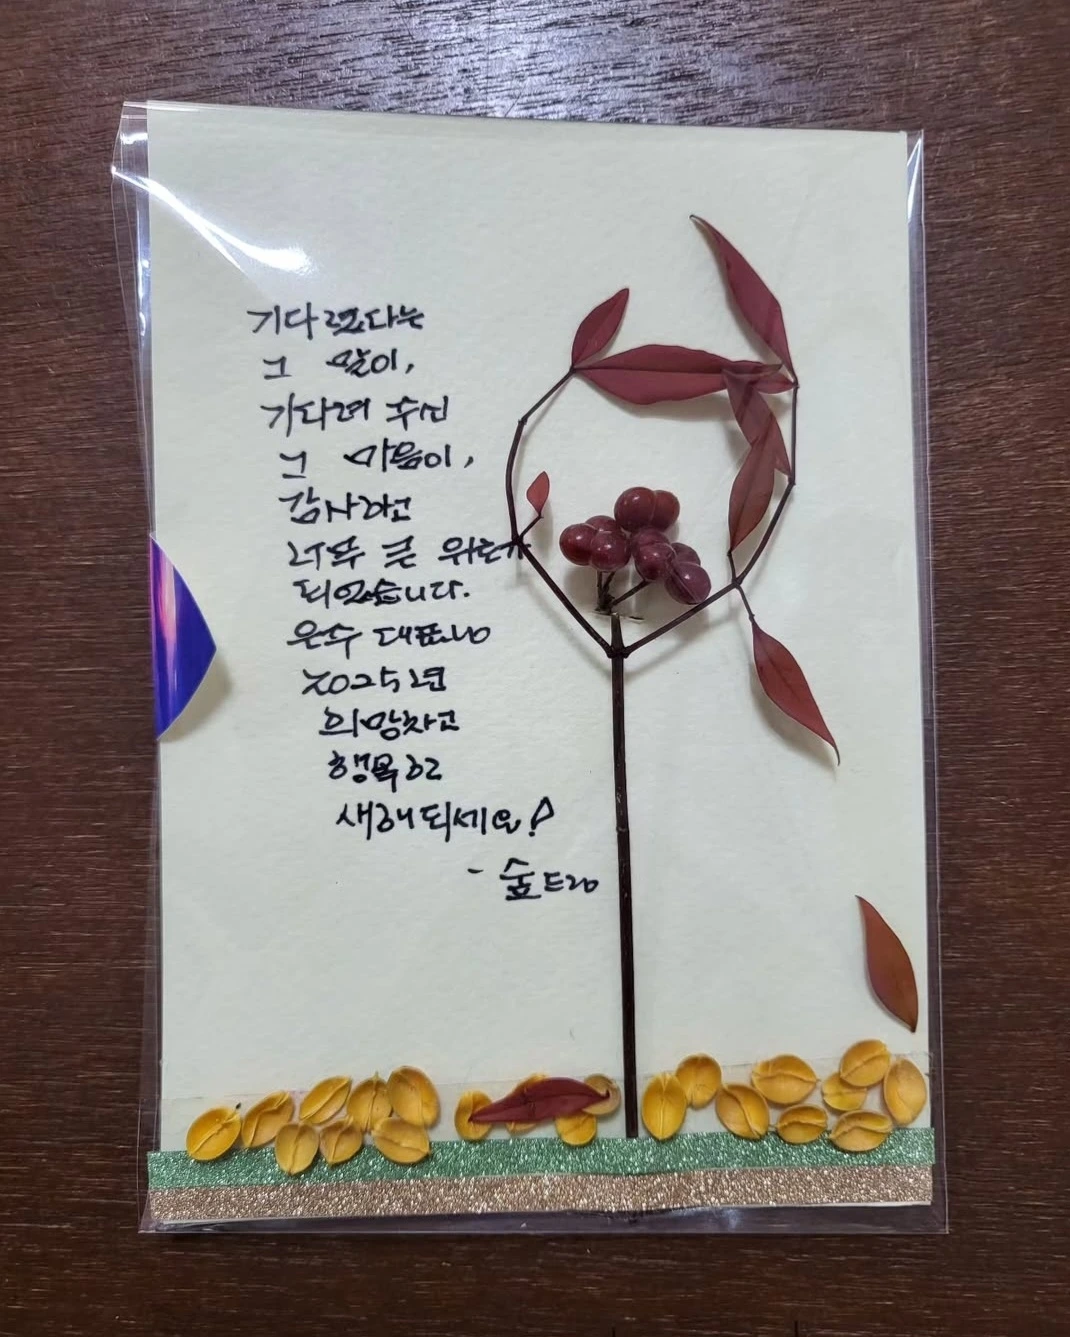 기다렸다는
그 말이,
기다려 주신
그 마음이,
감사하고
너무 큰 위로가
되었습니다.
은수 대표님
2025년
희망차고
행복한
새해되세요!
- 숲드림